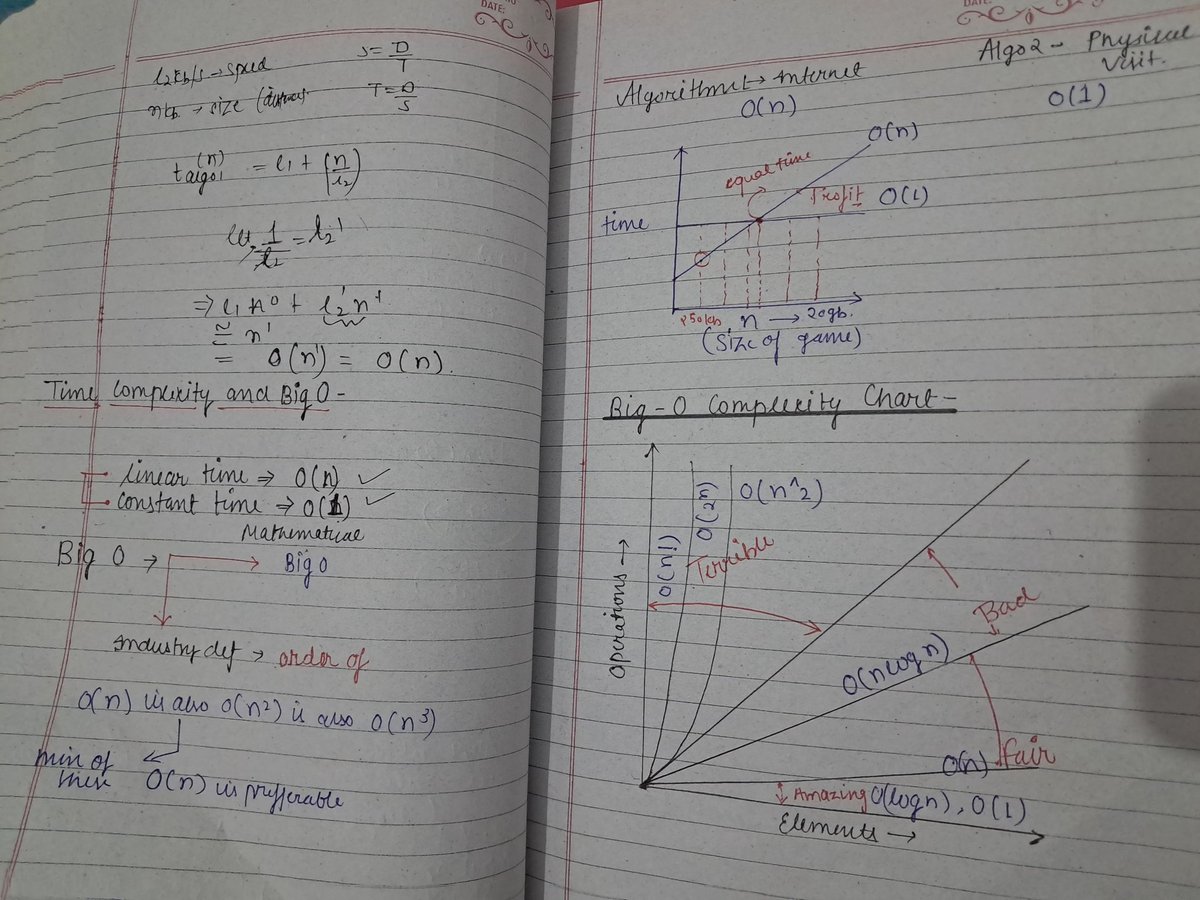 DATE:
l2kb/s → speed
S = D/T
nkb → size (
T = D/S
t algo1 (n) = l1 + (n/l2)
let, 1/l2 = l2'
⇒ l1 n⁰ + l2' n¹
≅ n¹
= O(n¹) = O(n).
Time Complexity and Big O -
linear time ⇒ O(n) ✓
constant time ⇒ O(1) ✓
Mathematical
Big O → Big O
Industry def → order of
O(n) is also O(n²) is also O(n³)
min of
them O(n) is prefferable
DATE:
Algorithm1 → Internet
O(n)
Algo2 - Physical
Visit.
O(1)
O(n)
equal time
Profit O(1)
time
250kb n → 20gb.
(Size of game)
Big - O Complexity Chart -
Operations →
O(n!)
O(2n)
O(n^2)
Terrible
Bad
O(n log n)
O(n) fair
Amazing O(log n), O(1)
Elements →